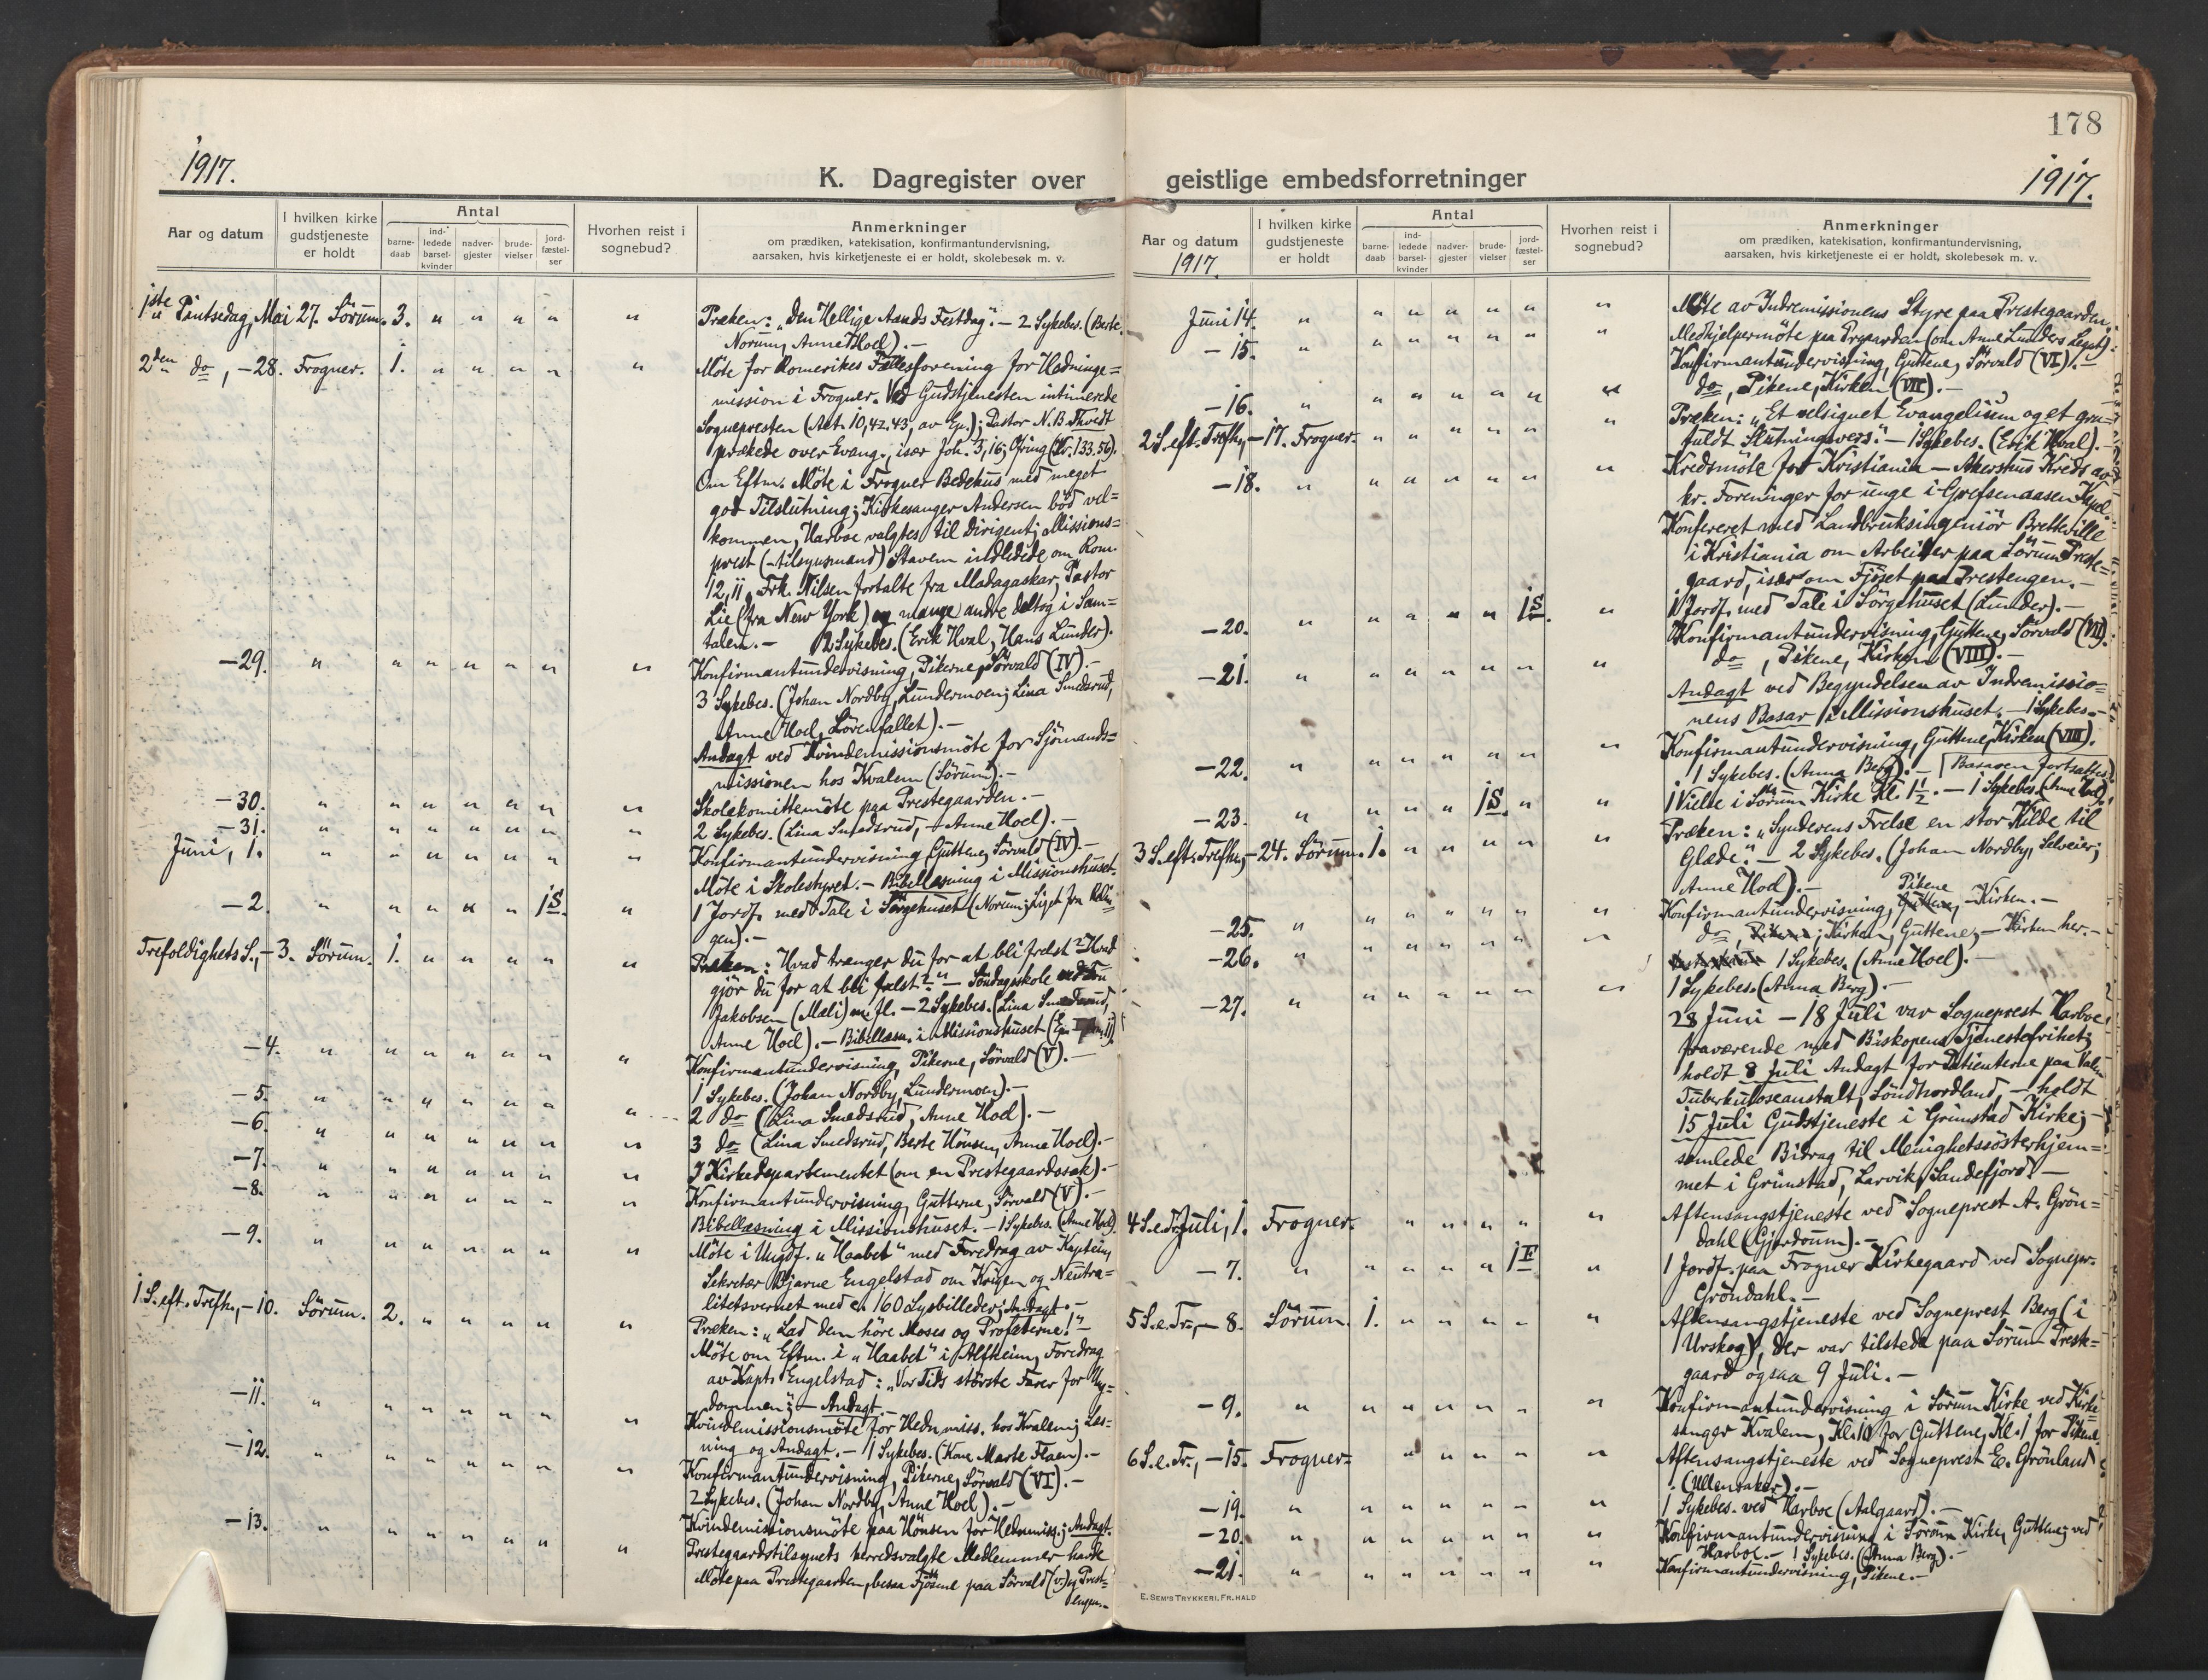 1917.
K. Dagregister over
Aar og datum
I hvilken kirke gudstjeneste er holdt
Antal
barne-daab
ind-ledede barsel-kvinder
nadver-gjester
brude-vielser
jord-fæstel-ser
Hvorhen reist i sognebud?
Anmerkninger
om prædiken, katekisation, konfirmantundervisning,
aarsaken, hvis kirketjeneste ei er holdt, skolebesøk m. v.
1ste Pintsedag, Mai 27. Sörum. 3. " " " " " Præken: „Den Hellige Aands Festdag". – 2 Sykebes. (Berte
Norum, Anne Hoel). –
2den do, – 28. Frogner. 1. " " " " " Möte for Romerikes Fællesforening for Hedninge=
mission i Frogner. Ved Gudstjenesten intimerede
Sognepresten (Act. 10,42.43, av Ep.); Pastor N. B. Thvedt
prækede over Evang., især Joh. 3,16; Ofring (Kr. 133.56).
Om Eftm. Möte i Frogner Bedehus med meget
god Tilslutning; Kirkesanger Andersen böd vel=
kommen, Harboe valgtes til Dirigent; Missions=
prest (-tilsynsmand) Stavem indledede om Rom.
12,11, Frk. Nilsen fortalte fra Madagaskar, Pastor
Lie (fra New York) og mange andre deltog i Sam=
talen. – 2 Sykebes. (Erik Hval, Hans Lunder).
– 29. " " " " " " " Konfirmantundervisning, Pikerne, Sörvald (IV). –
3 Sykebes. (Johan Nordby, Lundermoen; Lina Smedsrud,
Anne Hoel, Lörenfallet). –
Andagt ved Kvindemissionsmöte for Sjömands=
missionen hos Kvalem (Sörum). –
– 30. " " " " " " " Skolekomitemöte paa Prestegaarden. –
– 31. " " " " " " " 2 Sykebes. (Lina Smedsrud, – Anne Hoel). –
Juni, 1. " " " " " " " Konfirmantundervisning, Guttene, Sörvald (IV). –
Möte i Skolestyret. – Bibellæsning i Missionshuset.
– 2. " " " " " 1 S. " 1 Jordf. med Tale i Sörgehuset (Norum; Liget fra
gen). –
Trefoldighets S., – 3. Sörum. 1. " " " " " Præken: Hvad trænger du for at bli frelst? Hvad
gjör du for at bli frelst?" – Söndagsskole ved
Jakobsen (Mæli) m. fl. – 2 Sykebes. (Lina Smedsrud,
Anne Hoel). – Bibellæsn. i Missionshuset
– 4. " " " " " " " Konfirmantundervisning, Pikerne, Sörvald (V). –
1 Sykebes. (Johan Nordby, Lundermoen). –
– 5. " " " " " " " 2 do (Lina Smedsrud, Anne Hoel). –
– 6. " " " " " " " 3 do (Lina Smedsrud, Berte Hönsen, Anne Hoel). –
– 7. " " " " " " " I Kirkedepartementet (om en Prestegaardssak). –
– 8. " " " " " " " Konfirmantundervisning, Gutterne, Sörvald (V). –
Bibellæsning i Missionshuset. – 1 Sykebes. (Anne Hoel).
– 9. " " " " " " " Möte i Ungdf. „Haabet" med Foredrag av Kaptein,
Sekretær Bjarne Engelstad om Krigen og Neutra=
litetsvernet med ca. 160 Lysbilleder; Andagt. –
1 S. eft. Trefh., – 10. Sörum. 2. " " " " " Præken: „Lad dem höre Moses og Profeterne!" –
Möte om Eftm. i „Haabet" i Alfheim, Foredrag
av Kapt. Engelstad: „Vor Tids störste Farer for Ung=
dommen"; – Andagt. –
– 11. " " " " " " " Kvindemissionsmöte for Hedn. miss. hos Kvalem; Læs=
ning og Andagt. – 1 Sykebes. (Kone Marte Flaen). –
– 12. " " " " " " " Konfirmantundervisning, Pikerne, Sörvald (VI). –
2 Sykebes. (Johan Nordby, Anne Hoel). –
– 13. " " " " " " " Kvindemissionsmöte paa Hönsen for Hednmiss.; Andagt.
Prestegaardstilsynets herredsvalgte Medlemmer havde
Möte paa Prestegaarden, besaa Fjösene paa Sörvald (v.) og Prest=
engen. –
178
1917.
geistlige embedsforretninger
Aar og datum
1917.
I hvilken kirke gudstjeneste er holdt
Antal
barne-daab
ind-ledede barsel-kvinder
nadver-gjester
brude-vielser
jord-fæstel-ser
Hvorhen reist i sognebud?
Anmerkninger
om prædiken, katekisation, konfirmantundervisning,
aarsaken, hvis kirketjeneste ei er holdt, skolebesøk m. v.
Juni 14. " " " " " " " Möte av Indremissionens Styre paa Prestegaarden.
– 15. " " " " " " " Medhjelpermöte paa Prgaarden (om Anne Lunders Legat).
Konfirmantundervisning, Guttene, Sörvald (VI). –
– 16. " " " " " " " do, Pikene, Kirken (VII). –
2 S. eft. Trefh., – 17. Frogner. " " " " " " Præken: „Et velsignet Evangelium og et gru=
fuldt Slutningsvers." – 1 Sykebes. (Erik Hval). –
– 18. " " " " " " " Kredsmöte for Kristiania – Akershus Kreds av
kr. Foreninger for unge i Grefsenaasen Kapel.
Konfereret med Landbruksingeniör Bretteville
i Kristiania om Arbeider paa Sörum Preste=
gaard, især om Fjöset paa Prestengen. –
– 20. " " " " " 1 S. " 1 Jordf. med Tale i Sörgehuset (Lunder). –
Konfirmantundervisning, Guttene, Sörvald (VII).
– 21. " " " " " " " do, Pikene, Kirken (VIII). –
Andagt ved Begyndelsen av Indremissio=
nens Basar i Missionshuset. – 1 Sykebes. –
– 22. " " " " " " " Konfirmantundervisning, Guttene, Kirken (VIII).
1 Sykebes. (Anna Berg). – [Basaren fortsattes.]
– 23. " " " " 1 S. " " 1 Vielse i Sörum Kirke Kl. 1½. – 1 Sykebes. (Anne Hoel).
3 S. eft. Trefh., – 24. Sörum. 1. " " " " " Præken: „Synderens Frelse en stor Kilde til
Glæde." – 2 Sykebes. (Johan Nordby, Selveier;
Anne Hoel). –
– 25. " " " " " " " Konfirmantundervisning, Pikene, – Kirken. –
– 26. " " " " " " " do, Guttene, – Kirken her. –
1 Sykebes. (Anne Hoel). –
– 27. " " " " " " " 1 Sykebes. (Anna Berg). –
28 Juni – 18 Juli var Sogneprest Harboe
fraværende med Biskopens Tjenestefrihet;
holdt 8 Juli Andagt for Patienterne paa Valen
Tuberkuloseanstalt, Söndhordland, – holdt
15 Juli Gudstjeneste i Grimstad Kirke; –
samlede Bidrag til Menighetssösterhjem=
met i Grimstad, Larvik, Sandefjord. –
4 S. e. Tr. Juli, 1. Frogner. " " " " " Aftensangstjeneste ved Sogneprest A. Grön=
dahl (Gjerdrum). –
– 7. " " " " " 1 F " 1 Jordf. paa Frogner Kirkegaard ved Sognepr.
Gröndahl. –
5 S. e. Tr., – 8. Sörum. 1. " " " " " Aftensangstjeneste ved Sogneprest Berg (i
Urskog), der var tilstede paa Sörum Preste=
gaard ogsaa 9 Juli. –
– 9. " " " " " " " Konfirmantundervisning i Sörum Kirke ved Kirke=
sanger Kvalem, Kl. 10 for Guttene, Kl. 1 for Pikene
6 S. e. Tr., – 15. Frogner. " " " " " Aftensangstjeneste ved Sogneprest E. Grönland
(Ullensaker). –
– 19. " " " " " " " 1 Sykebes. ved Harboe (Aalgaard). –
– 20. " " " " " " " Konfirmantundervisning i Sörum Kirke, Guttene, ved
Harboe. – 1 Sykebes. (Anna Berg). –
– 21. " " " " " " " Konfirmantundervisning, Pikene. –
E. SEM'S TRYKKERI, FR.HALD